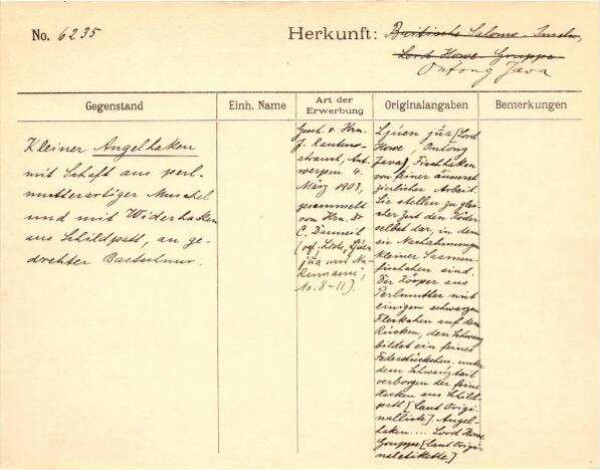 No. 6235
Herkunft: Britische Salomo-Inseln,
Lord Howe-Gruppe
Ontong Java
Gegenstand
Einh. Name
Art der Erwerbung
Originalangaben
Bemerkungen
Kleiner Angelhaken
mit Schaft aus perl-
mutterartiger Muschel
und mit Widerhacken
aus Schildpatt, an ge-
drehter Bastschnur.
Gesch. v. Hrn.
J. Rauten-
strauch, Ant-
werpen 4.
März 1903,
gesammelt
von Hrn. Dr
C. Damsel
No. 8-11).
Ljuen jua [Lord
Howe, Ontong
Java], Fischhaken
von feiner äusserst
zierlicher Arbeit.
Sie stellen zu glei-
cher Zeit den Köder
selbst dar, in dem
sie Nachahmungen
kleiner
fischchen sind.
Der Körper aus
Perlmutter mit
einigen schwarzen
Fleckchen auf dem
Rücken, den Schwanz
bildet ein feines
Federstückchen, unter
dem Schwanzteil
verborgen der feine
Hacken aus Schild-
patt [Laut Origi-
nalliste]. Angel-
haken.... Lord Howe
Gruppe [Laut Origi-
naletikette]